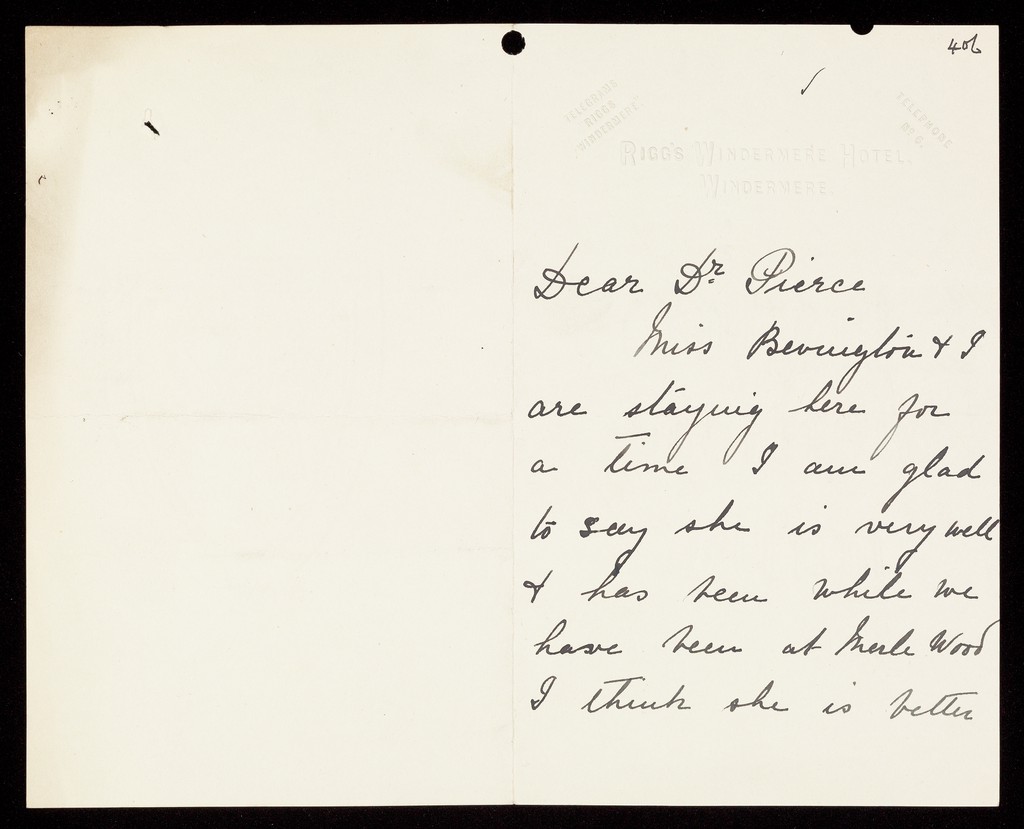 406
TELEGRAMS
RIGGS
WINDERMERE.
TELEPHONE
No 6.
RIGG'S WINDERMERE HOTEL,
WINDERMERE.
Dear Dr. Pierce
Miss Bevington & I
are staying here for
a time I am glad
to say she is very well
& has been while we
have been at Merle Wood
I think she is better